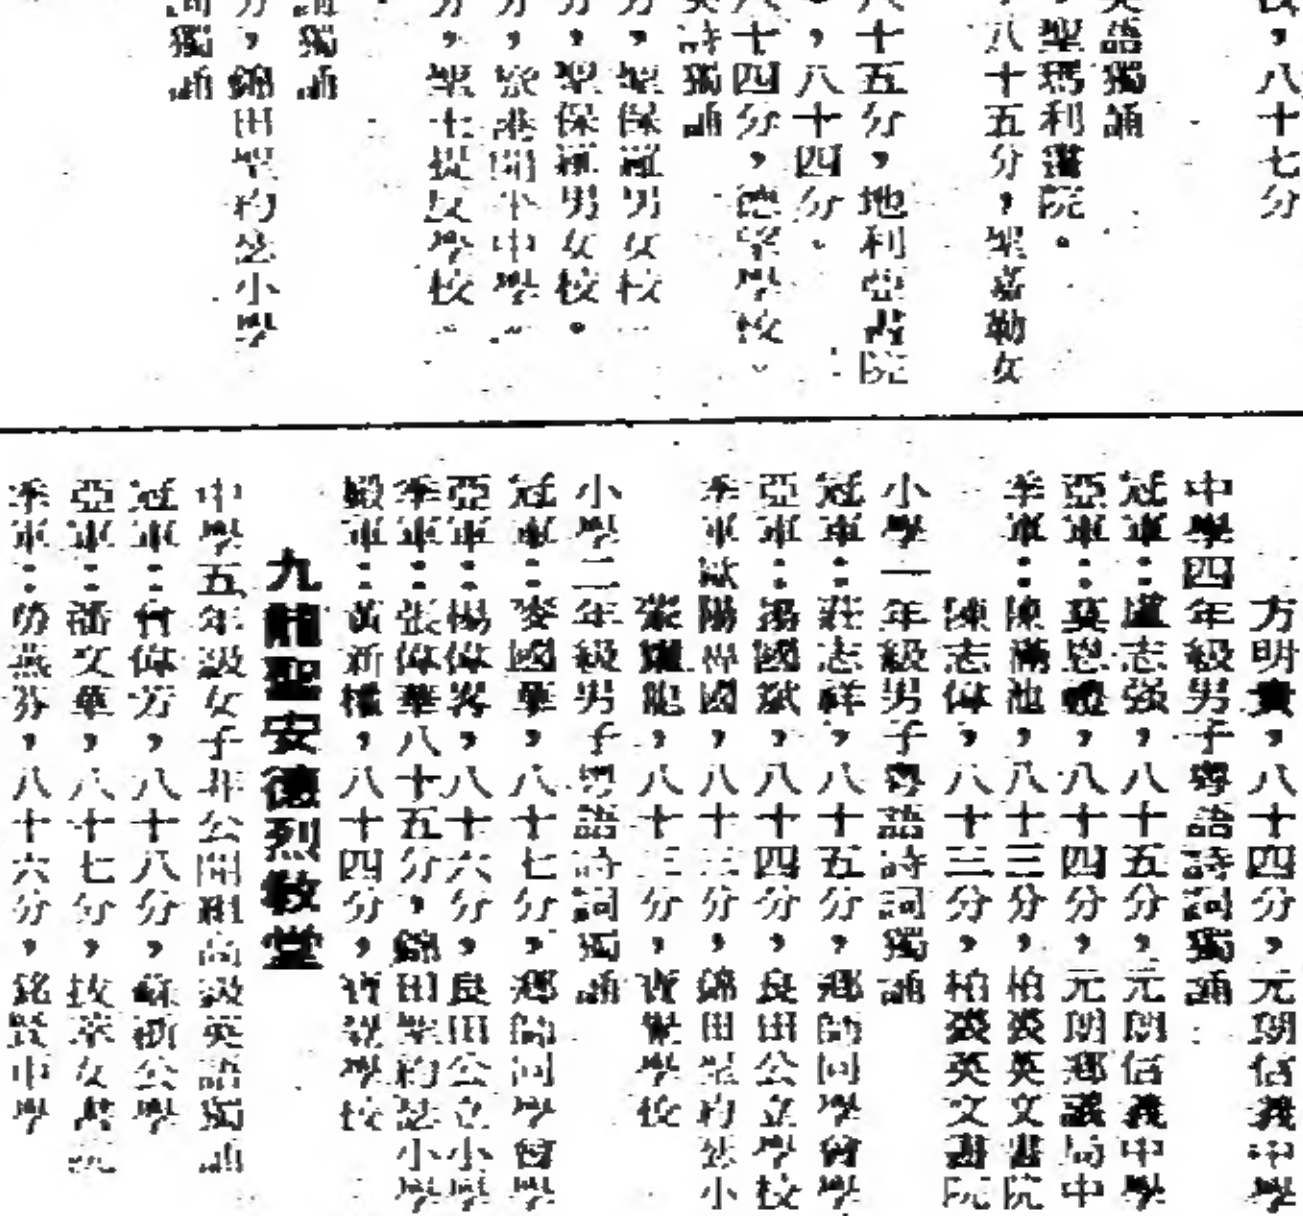 ，八十七分
英語獨誦
聖瑪利書院。
八十五分，聖嘉勒女
八十五分，地利亞書院
，八十四分。
八十四分，德望學校。
英詩獨誦
，聖保羅男女校
，聖保羅男女校。
，聖士提反女學校。
詞獨誦
分，錦田聖約瑟小學
詞獨誦
方明貴，八十四分，元朗信義中學
中學四年級男子粵語詩詞獨誦
冠軍：盧志强，八十五分，元朗信義中學
亞軍：莫恩禮，八十四分，元朗鄉議局中
季軍：陳滿池，八十三分，柏裘英文書院
陳志偉，八十三分，柏裘英文書院
小學一年級男子粵語詩詞獨誦
冠軍：莊志祥，八十五分，鄉師同學會學
亞軍：湯國斌，八十四分，良田公立學校
季軍：歐陽國，八十三分，錦田聖約瑟小
張耀龍，八十三分，
小學二年級男子粵語詩詞獨誦
冠軍：麥國華，八十七分，鄉師同學會學
亞軍：楊偉畧，八十六分，良田公立小學
季軍：張偉華八十五分，錦田聖約瑟小學
殿軍：黃新權，八十四分，
九龍聖安德烈教堂
中學五年級女子非公開組高級英語獨誦
冠軍：曾偉芳，八十八分，蘇浙公學
亞軍：潘文華，八十七分，拔萃女書院
季軍：勞燕芬，八十六分，銘賢中學